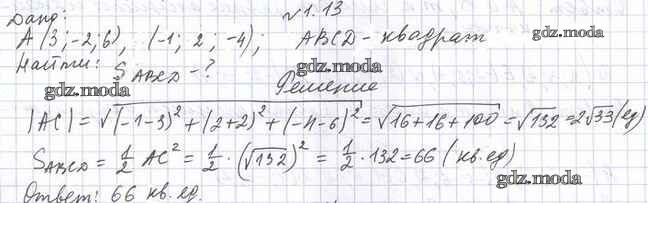 Дано: №1.13
A (3; -2; 6), (-1; 2; -4); ABCD - квадрат gdz.moda
Найти: S_ABCD - ? gdz.moda
gdz.moda Решение
|AC| = √((-1-3)² + (2+2)² + (-4-6)²) = √(16+16+100) = √132 = 2√33 (ед)
S_ABCD = 1/2 AC² = 1/2 · (√132)² = 1/2 · 132 = 66 (кв.ед)
gdz.moda
Ответ: 66 кв. ед.